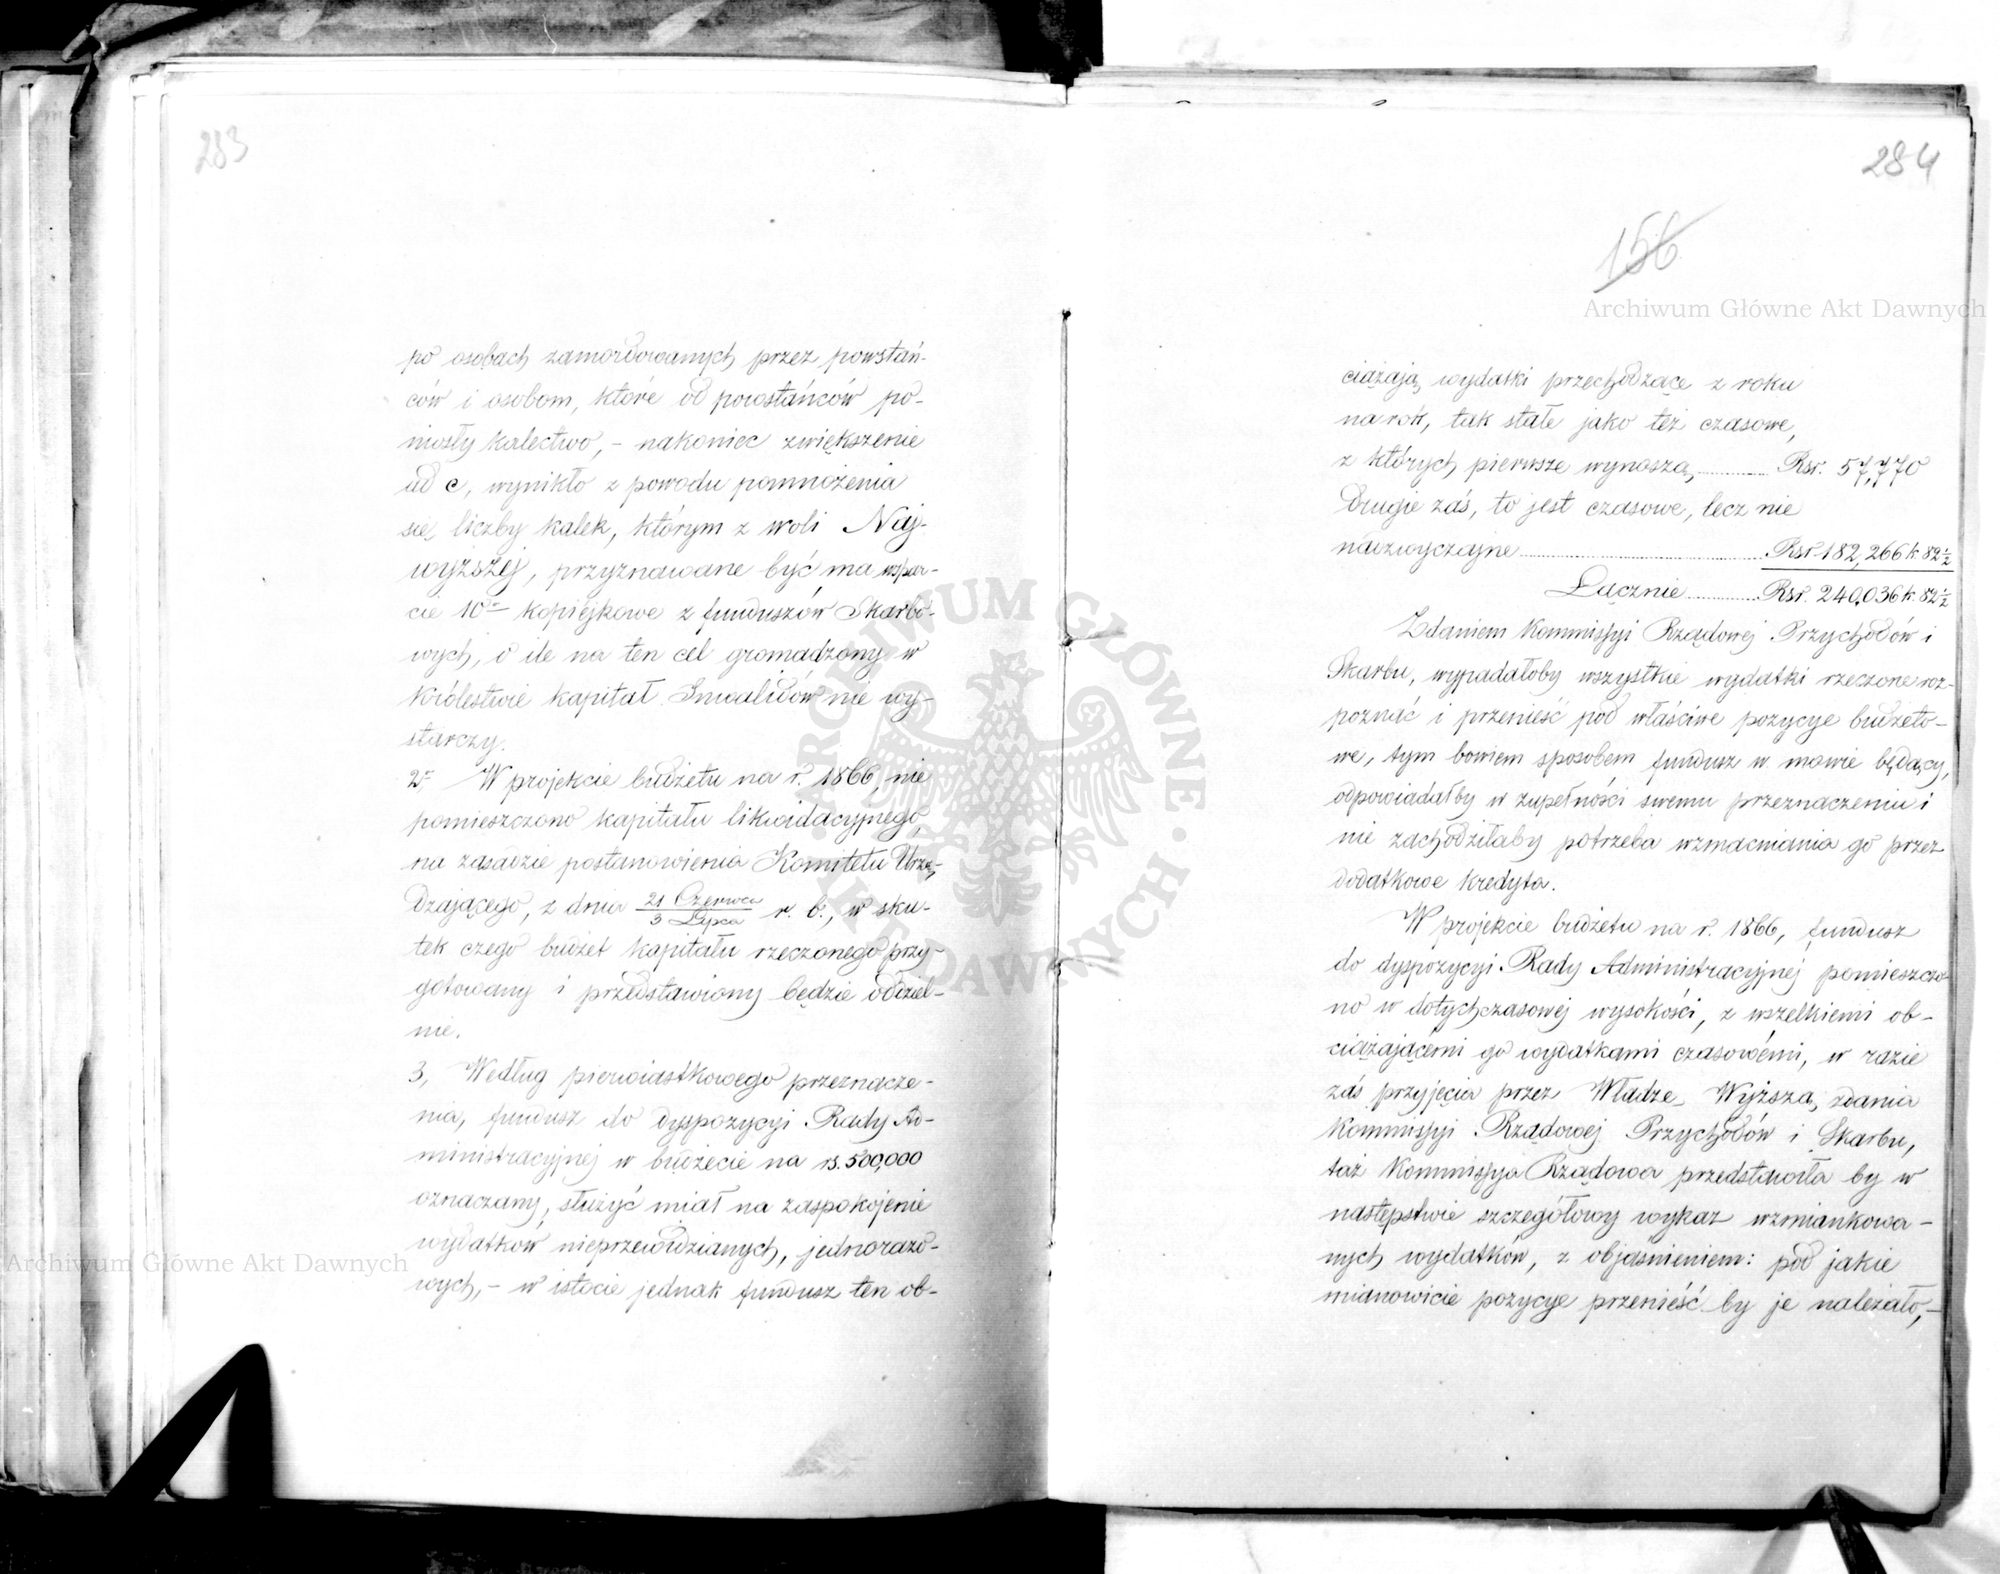 283
po osobach zamordowanych przez powstań-
ców i osobom, które od powstańców po-
niosły kalectwo, - nakoniec zwiększenie
ad c, wynikło z powodu pomnożenia
się liczby kalek, którym z woli Naj-
wyższej, przyznawane być ma wspar-
cie 10cio kopiejkowe z funduszów Skarbo-
wych, o ile na ten cel gromadzony w
Królestwie kapitał Inwalidów nie wy-
starczy.
2, W projekcie budżetu na r. 1866, nie
pomieszczono kapitału likwidacyjnego,
na zasadzie postanowienia Komitetu Urzą-
dzającego, z dnia 21 Czerwca / 3 Lipca r. b., w sku-
tek czego budżet kapitału rzeczonego przy-
gotowany i przedstawiony będzie oddziel-
nie.
3, Według pierwiastkowego przeznacze-
nia, fundusz do dyspozycyi Rady Ad-
ministracyjnej w budżecie na rs. 500,000
oznaczany, służyć miał na zaspokojenie
wydatków nieprzewidzianych, jednorazo-
wych, - w istocie jednak fundusz ten ob-
284
156
ciążają wydatki przechodzące z roku
na rok, tak stałe jako też czasowe,
z których pierwsze wynoszą Rsr. 57,770
drugie zaś, to jest czasowe, lecz nie
nadzwyczajne Rsr. 182,266 k 82½
Łącznie Rsr. 240,036 k. 82½
Zdaniem Kommissyi Rządowej Przychodów i
Skarbu, wypadałoby wszystkie wydatki rzeczone roz-
poznać i przenieść pod właściwe pozycye budżeto-
we, tym bowiem sposobem fundusz w mowie będący,
odpowiadałby w zupełności swemu przeznaczeniu i
nie zachodziłaby potrzeba wzmacniania go przez
dodatkowe kredyta.
W projekcie budżetu na r. 1866, fundusz
do dyspozycyi Rady Administracyjnej pomieszczo-
no w dotychczasowej wysokości, z wszelkiemi ob-
ciążającemi go wydatkami czasowémi, w razie
zaś przyjęcia przez Władzę Wyższą, zdania
Kommissyi Rządowej Przychodów i Skarbu,
taż Kommissya Rządowa przedstawiła by w
następstwie szczegółowy wykaz wzmiankowa-
nych wydatków, z objaśnieniem: pod jakie
mianowicie pozycye przenieść by je należało,-
Archiwum Główne Akt Dawnych
Archiwum Główne Akt Dawnych
ARCHIWUM GŁÓWNE · AKT DAWNYCH ·